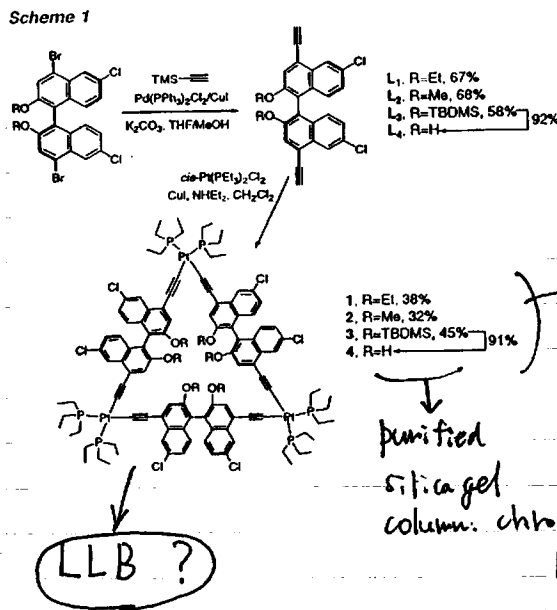 Scheme 1
Br
Cl
RO
RO
Cl
Br
TMS
Pd(PPh3)2Cl2/CuI
K2CO3, THF/MeOH
Cl
RO
RO
Cl
L1, R=Et, 67%
L2, R=Me, 68%
L3, R=TBDMS, 58%
L4, R=H
92%
cis-Pt(PEt3)2Cl2
CuI, NHEt2, CH2Cl2
P P
Pt
Cl
Cl
OR RO
Cl
OR RO
Cl
OR RO
Pt
Pt
P
P
P
P
Cl
Cl
1, R=Et, 38%
2, R=Me, 32%
3, R=TBDMS, 45%
4, R=H
91%
purified
silica gel
column. chro
LLB ?